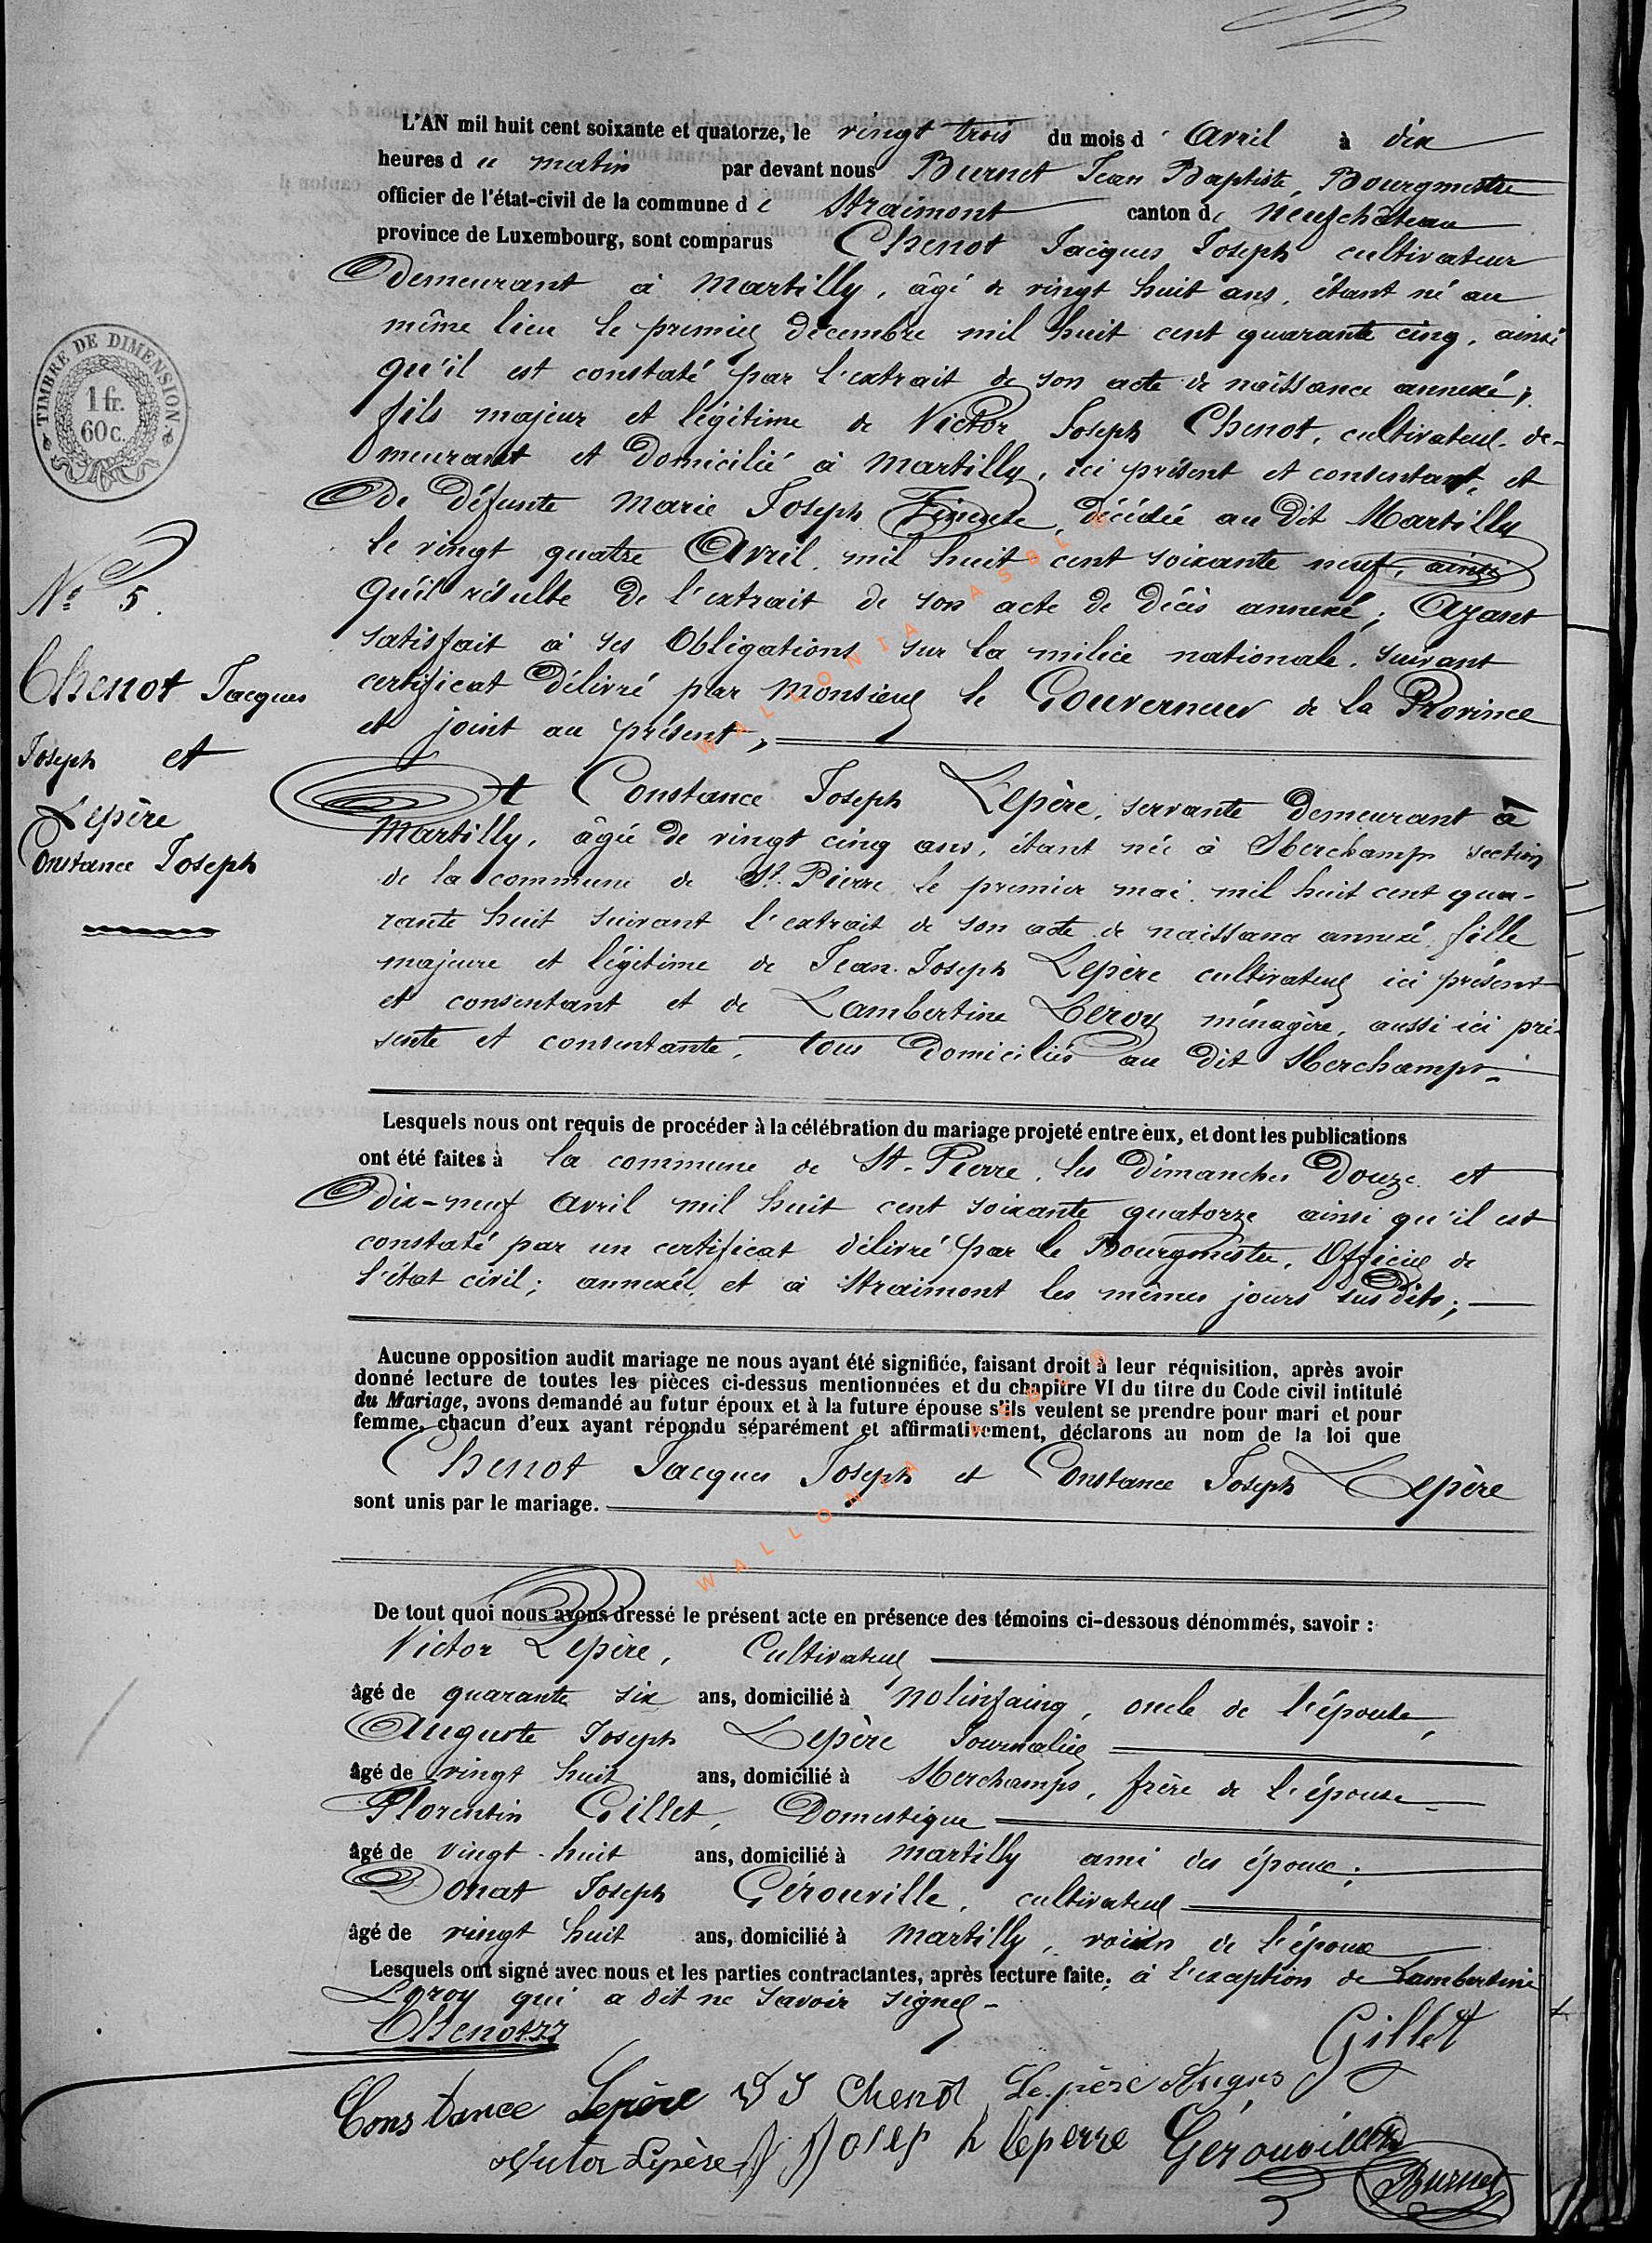 L'AN mil huit cent soixante et quatorze, le vingt trois du mois d' Avril à dix
heures du matin par devant nous Burnet Jean Baptiste, Bourgmestre
officier de l'état-civil de la commune de Straimont canton de Neufchâteau
province de Luxembourg, sont comparus Chenot Jacques Joseph cultivateur
demeurant à Martilly, âgé de vingt huit ans, étant né au
même lieu le premier décembre mil huit cent quarante cinq, ainsi
qu'il est constaté par l'extrait de son acte de naissance annexé,
fils majeur et légitime de Victor Joseph Chenot, cultivateur de-
meurant et domicilié à Martilly, ici présent et consentant, et
de défunte Marie Joseph décédée au dit Martilly
le vingt quatre Avril mil huit cent soixante neuf, ainsi
qu'il résulte de l'extrait de son acte de décès annexé; Ayant
satisfait à ses Obligations sur la milice nationale, suivant
certificat délivré par Monsieur le Gouverneur de la Province
et joint au présent,
TIMBRE DE DIMENSION.
1 fr.
60 c.
N° 5.
Chenot Jacques
Joseph et
Lepère
Constance Joseph
Et Constance Joseph Lepère, servante demeurant à
Martilly, âgée de vingt cinq ans, étant née à Sberchamps section
de la commune de St. Pierre le premier mai mil huit cent qua-
rante huit suivant l'extrait de son acte de naissance annexé, fille
majeure et légitime de Jean Joseph Lepère cultivateur ici présent
et consentant et de Lambertine Leroy ménagère, aussi ici pré-
sente et consentante, tous domiciliés au dit Sberchamps.
Lesquels nous ont requis de procéder à la célébration du mariage projeté entre eux, et dont les publications
ont été faites à la commune de St. Pierre, les dimanches Douze et
dix-neuf Avril mil huit cent soixante quatorze ainsi qu'il est
constaté par un certificat délivré par le Bourgmestre, Officier de
l'état civil; annexé, et à Straimont les mêmes jours sus dits;
Aucune opposition audit mariage ne nous ayant été signifiée, faisant droit à leur réquisition, après avoir
donné lecture de toutes les pièces ci-dessus mentionnées et du chapitre VI du titre du Code civil intitulé
du Mariage, avons demandé au futur époux et à la future épouse s'ils veulent se prendre pour mari et pour
femme, chacun d'eux ayant répondu séparément et affirmativement, déclarons au nom de la loi que
Chenot Jacques Joseph et Constance Joseph Lepère
sont unis par le mariage.
WALLONIA ASBL ®
De tout quoi nous avons dressé le présent acte en présence des témoins ci-dessous dénommés, savoir :
Victor Lepère, Cultivateur
âgé de quarante six ans, domicilié à Nolinfaing, oncle de l'épouse,
Auguste Joseph Lepère Journalier
âgé de vingt huit ans, domicilié à Sberchamps, frère de l'épouse
Florentin Gillet, Domestique
âgé de vingt-huit ans, domicilié à Martilly ami des époux;
Donat Joseph Gérouville, cultivateur
âgé de vingt huit ans, domicilié à Martilly, voisin de l'époux
Lesquels ont signé avec nous et les parties contractantes, après lecture faite, à l'exception de Lambertine
Leroy qui a dit ne savoir signer-
Chenot JJ
Gillet
Constance Lepère V J Chenot Lepère Augus
Victor Lepère J Josep h leperre Gérouville
Burnet